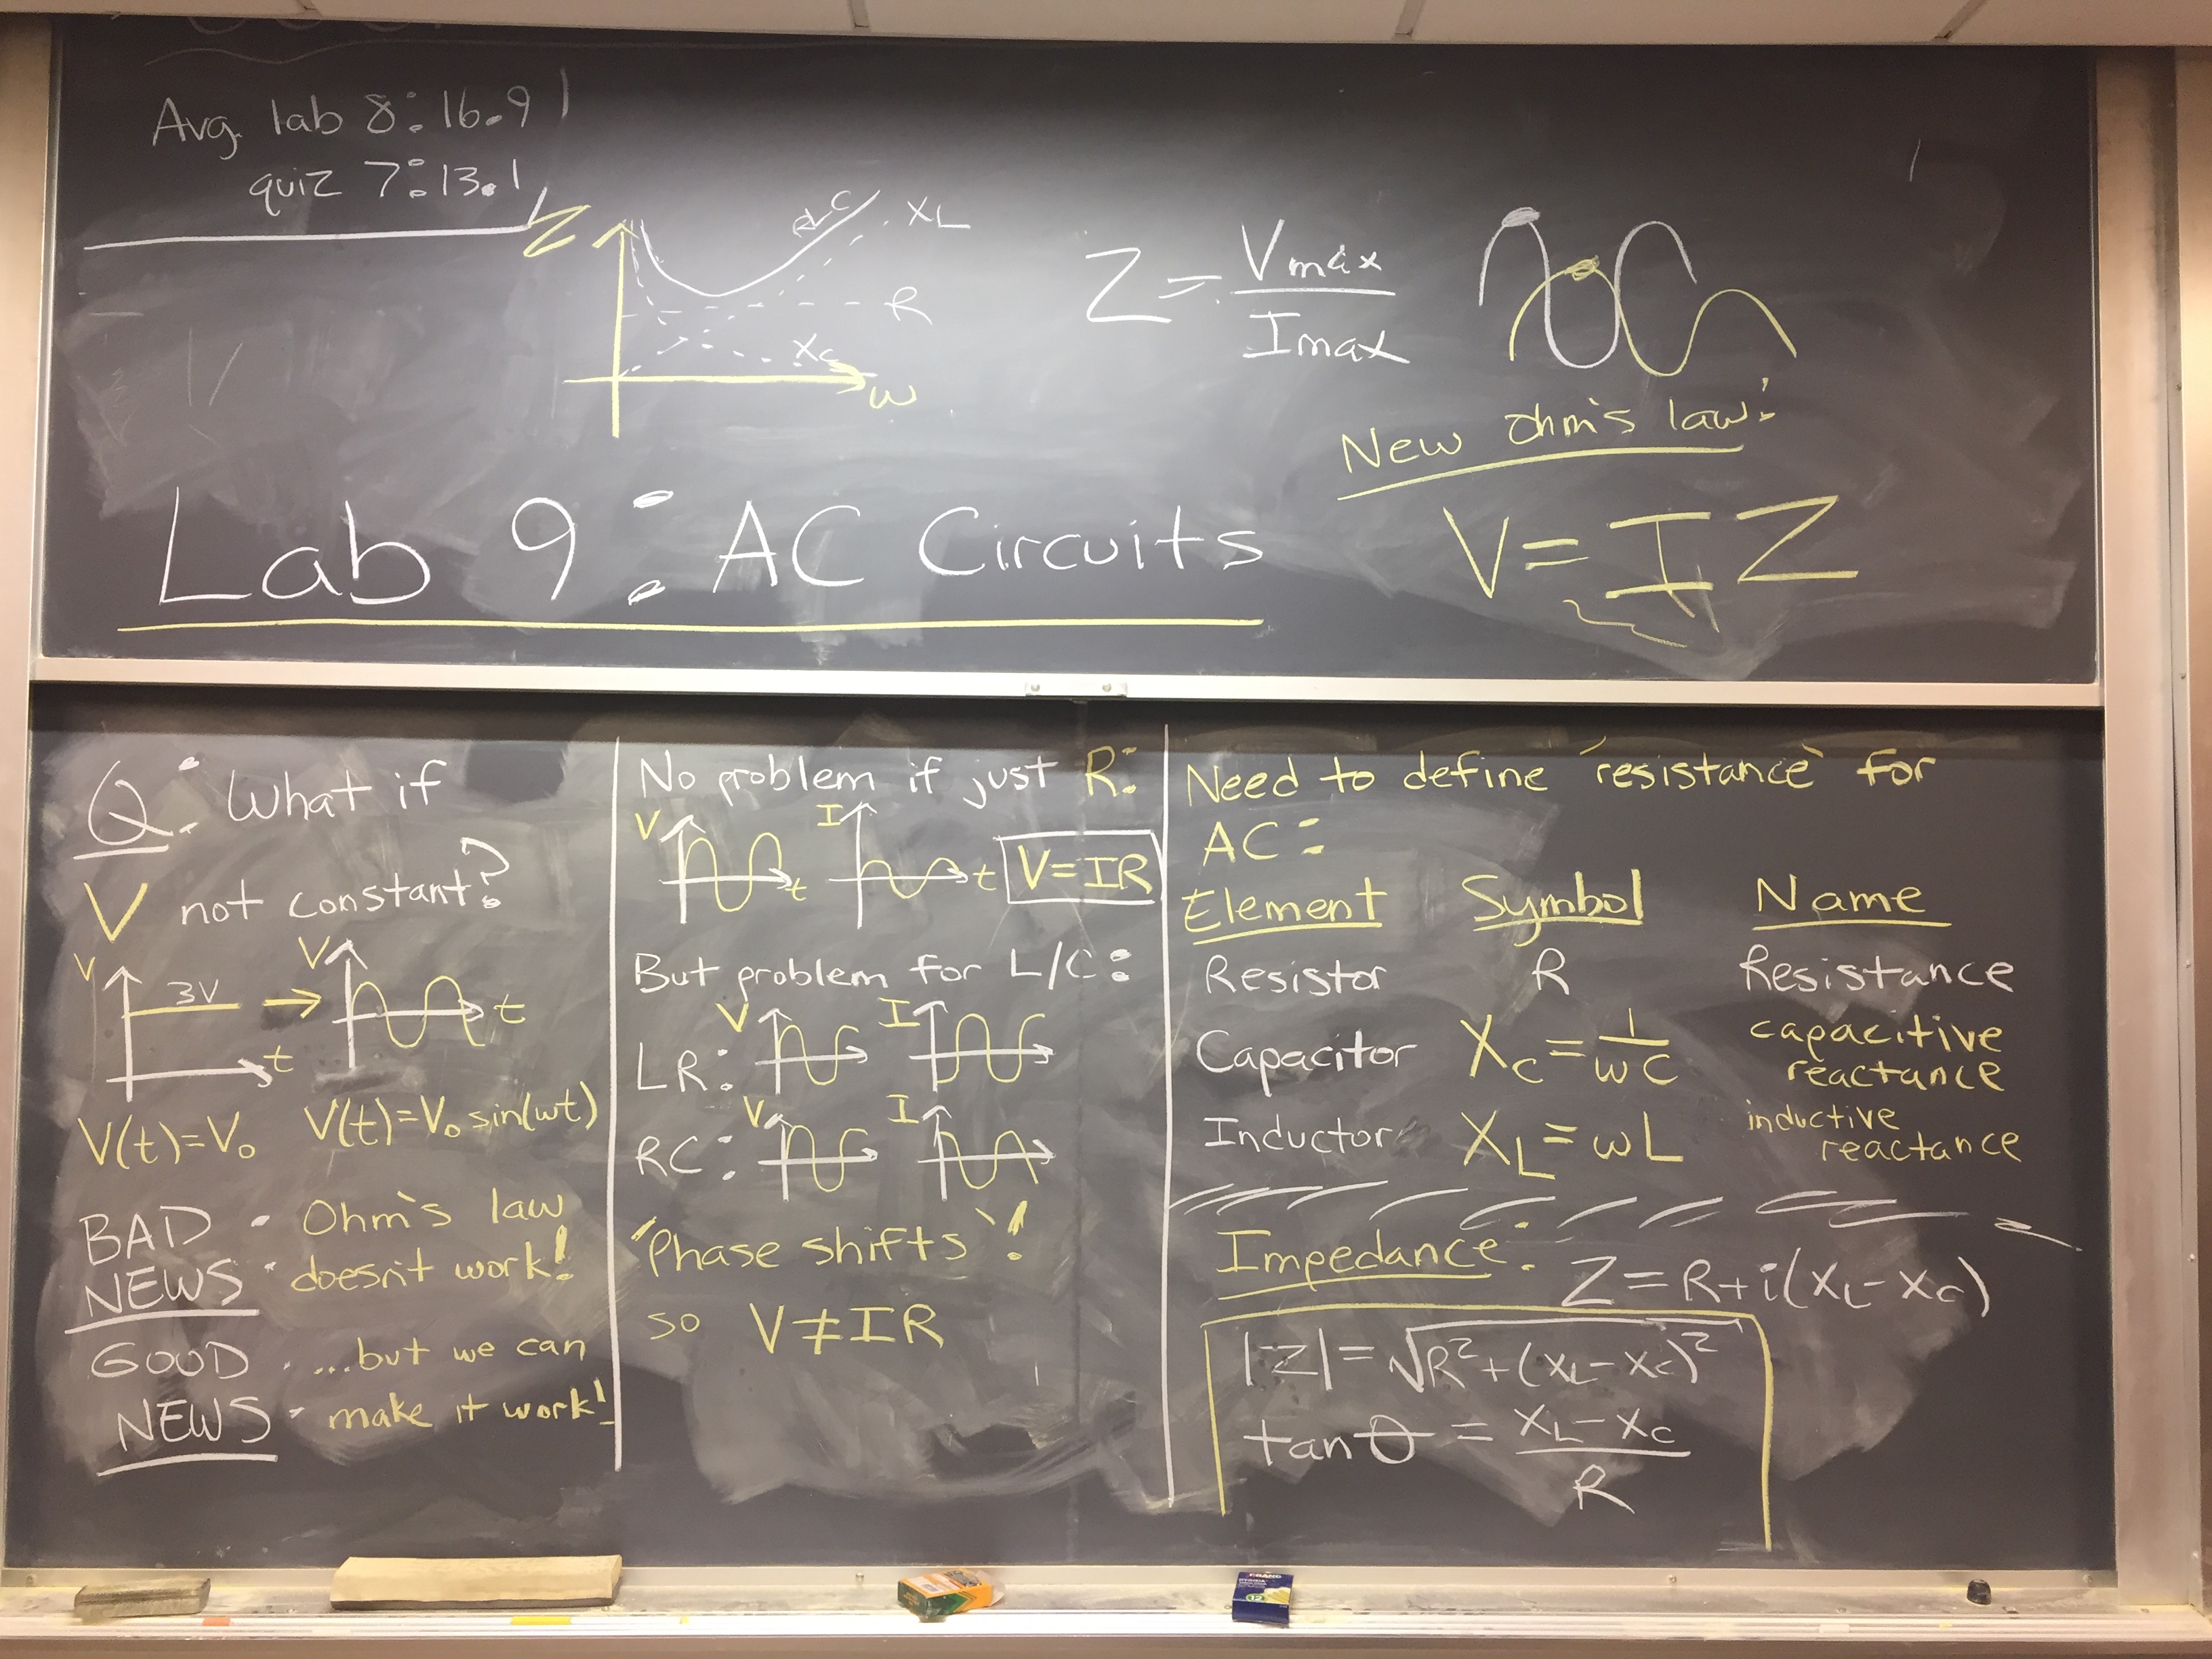 Avg. lab 8: 16.9
quiz 7: 13.1
Z
XL
R
Xc
w
Z = Vmax / Imax
New Ohm's law:
V = IZ
Lab 9: AC Circuits
Q: What if
V not constant?
V 3V t
V t
V(t)=V₀ V(t)=V₀ sin(ωt)
BAD NEWS
· Ohm's law
· doesn't work!
GOOD NEWS
· ...but we can
· make it work!
No problem if just R:
V t I t V=IR
But problem for L/C:
LR: V I
RC: V I
'Phase shifts'!
so V≠IR
Need to define 'resistance' for
AC:
Element Symbol Name
Resistor R Resistance
Capacitor Xc = 1/ωC capacitive reactance
Inductor XL = ωL inductive reactance
Impedance: Z = R + i(XL - Xc)
|Z| = √R² + (XL - Xc)²
tan θ = XL - Xc / R
12